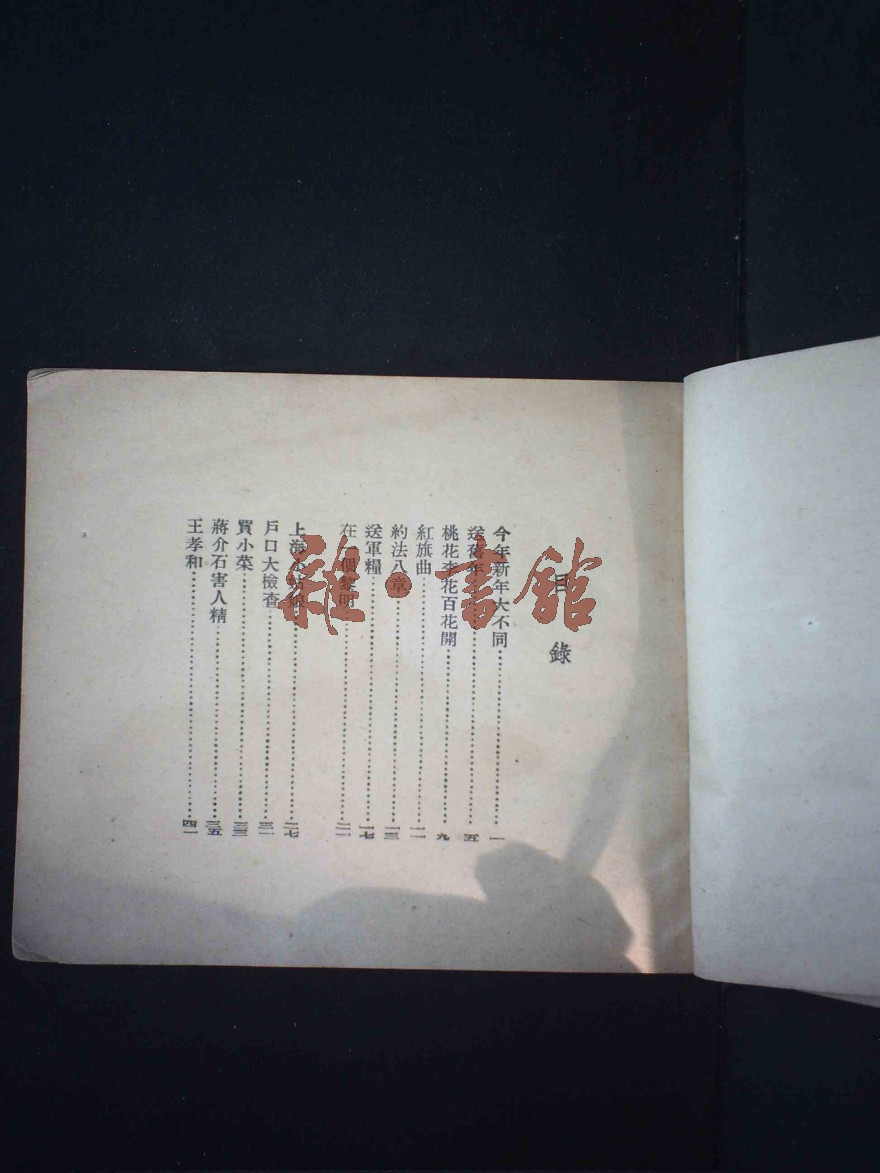 目錄
今年新年大不同……一
送舊年……五
桃花李花百花開……九
紅旗曲……一一
約法八章……一三
送軍糧……一七
在一個黎明……二二
上海小姑娘……二七
戶口大檢查……三一
買小菜……三三
蔣介石害人精……三五
王孝和……四一
雜·書館